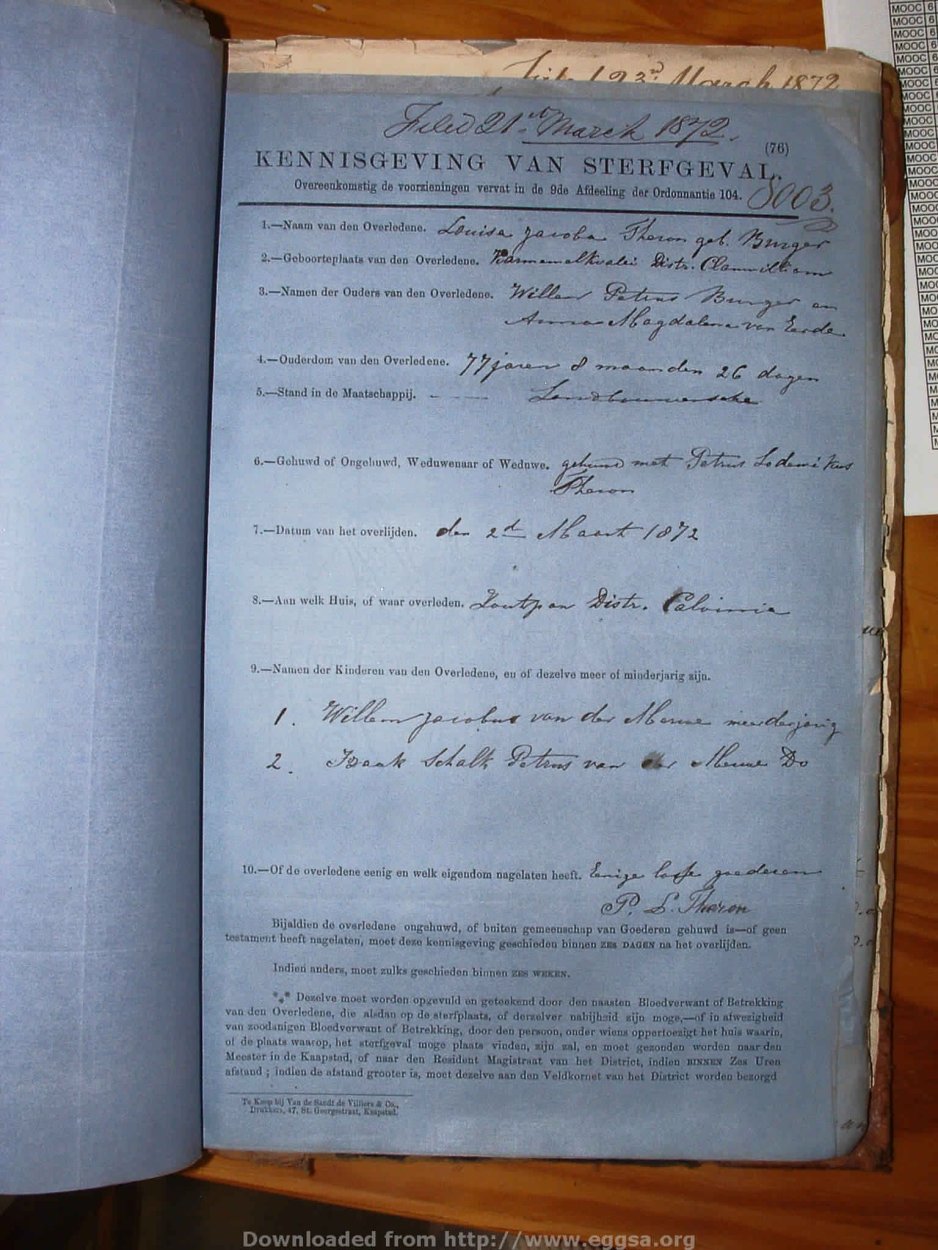 Filed 23rd March 1872
Filed 21st March 1872.
(76)
KENNISGEVING VAN STERFGEVAL.
Overeenkomstig de voorzieningen vervat in de 9de Afdeeling der Ordonnantie 104. 8003.
1.—Naam van den Overledene. Louisa Jacoba Theron geb. Burger
2.—Geboorteplaats van den Overledene. Distr. Clanwilliam
3.—Namen der Ouders van den Overledene. Willem Petrus Burger en
Anna Magdalena van Eerde
4.—Ouderdom van den Overledene. 77 jaren 8 maanden 26 dagen
5.—Stand in de Maatschappij. Landbouwersche
6.—Gehuwd of Ongehuwd, Weduwenaar of Weduwe. gehuwd met Petrus Lodewikus
Theron
7.—Datum van het overlijden. den 2d Maart 1872
8.—Aan welk Huis, of waar overleden. Zoutpan Distr. Calvinia
9.—Namen der Kinderen van den Overledene, en of dezelve meer of minderjarig zijn.
1. Willem Jacobus van der Merwe meerderjarig
2. Izaak Schalk Petrus van der Merwe Do
10.—Of de overledene eenig en welk eigendom nagelaten heeft. Eenige losse goederen
P. L. Theron
Bijaldien de overledene ongehuwd, of buiten gemeenschap van Goederen gehuwd is—of geen
testament heeft nagelaten, moet deze kennisgeving geschieden binnen ZES DAGEN na het overlijden.
Indien anders, moet zulks geschieden binnen ZES WEKEN.
*** Dezelve moet worden opgevuld en geteekend door den naasten Bloedverwant of Betrekking
van den Overledene, die alsdan op de sterfplaats, of derzelver nabijheid zijn moge,—of in afwezigheid
van zoodanigen Bloedverwant of Betrekking, door den persoon, onder wiens oppertoezigt het huis waarin,
of de plaats waarop, het sterfgeval moge plaats vinden, zijn zal, en moet gezonden worden naar den
Meester in de Kaapstad, of naar den Resident Magistraat van het District, indien BINNEN Zes Uren
afstand; indien de afstand grooter is, moet dezelve aan den Veldkornet van het District worden bezorgd
Te Koop bij Van de Sandt de Villiers & Co.,
Drukkers, 47, St. Georgestraat, Kaapstad.
Downloaded from http://www.eggsa.org